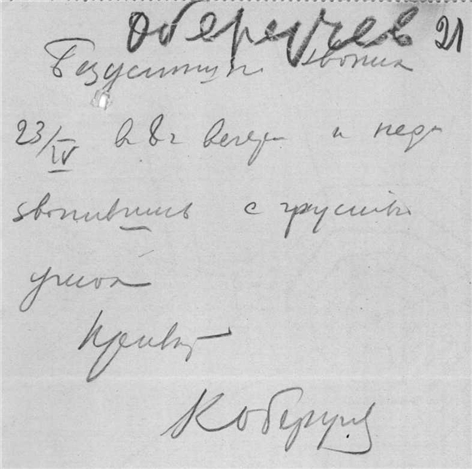 Оберучев 21
Безуспешно звонил
23/IV в 8 ч вечера и недо
звонившись с грустью
ушел
Привет
К Оберучев